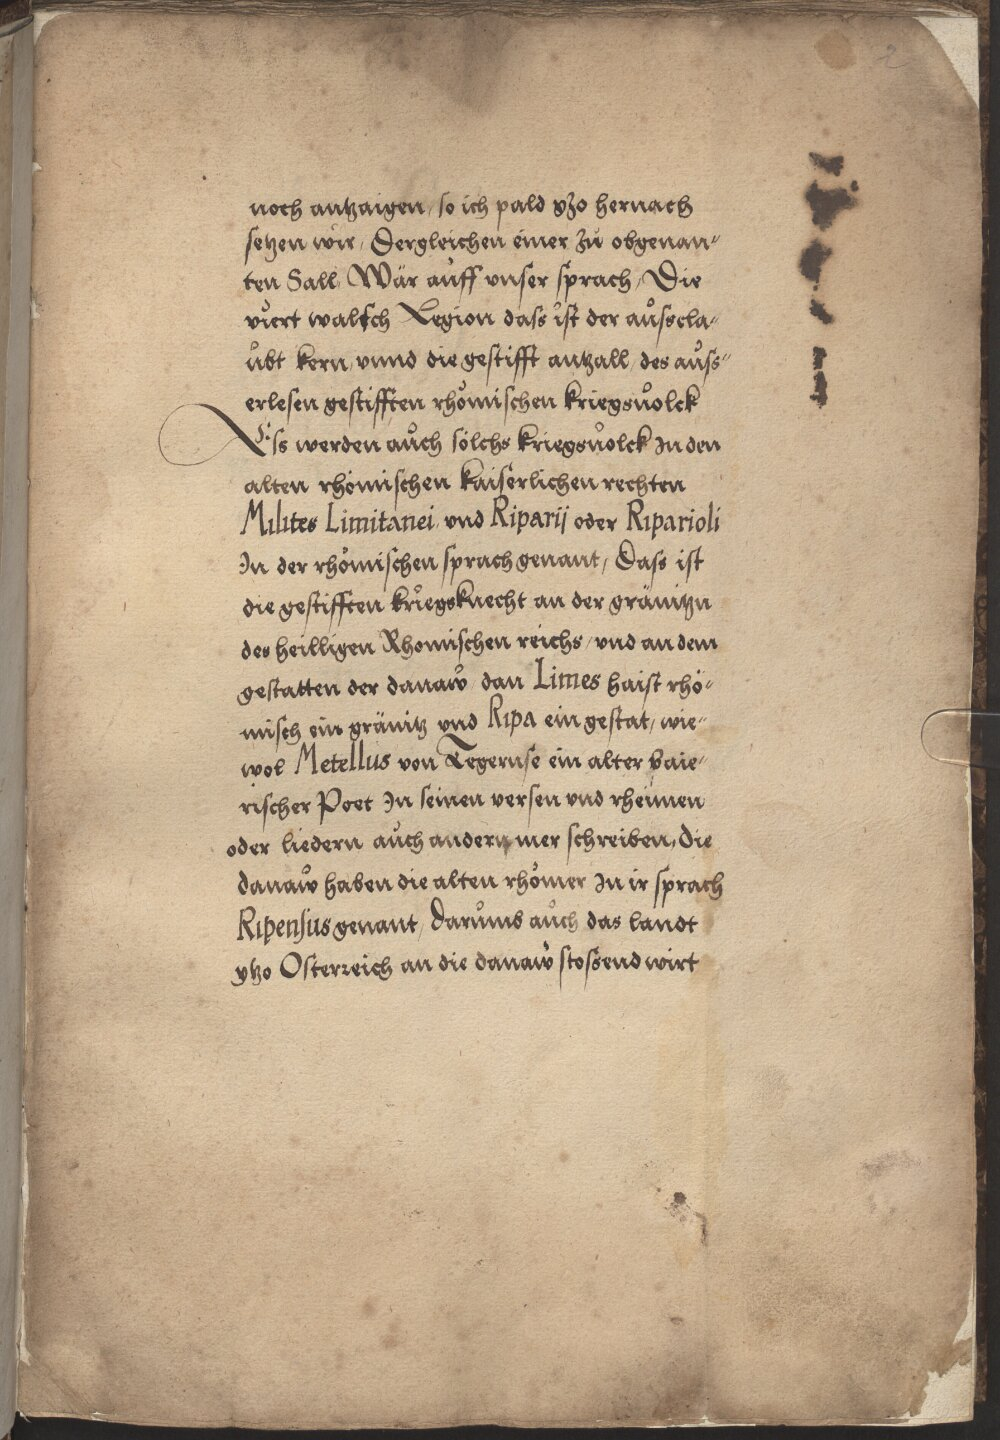 2
noch antzaigen / so ich pald yzo hernach
setzen wir / Dergleichen einer zů obgenan„
ten Sall / Wär aůff vnser sprach / Die
viert walsch Legion dass ist der aůsscla„
ůbt kern / vnnd die gestifft antzall / des aůss„
erlesen gestifften rhömischen kriegsuolck
Ess werden aůch sölchs kriegsůolck In den
alten rhömischen kaiserlichen rechten
Milites Limitanei vnd Riparij oder Riparioli
In der rhömischen sprach genant / Dass ist
die gestifften kriegsknecht an der gränitzn
des heilligen Rhomischen reichs / vnd an dem
gestatten der danaw / dan Limes haist rhö„
misch ein gränitz vnd Ripa ein gestat / wie„
wol Metellus von Tegernse ein alter baie„
rischer Poet In seinen versen vnd rheimen
oder liedern aůch andern mer schreiben / die
danaw haben die alten rhömer In ir sprach
Ripensus genant / Darůmb aůch das landt
ytzo Osterreich an die danaw stossend wirt